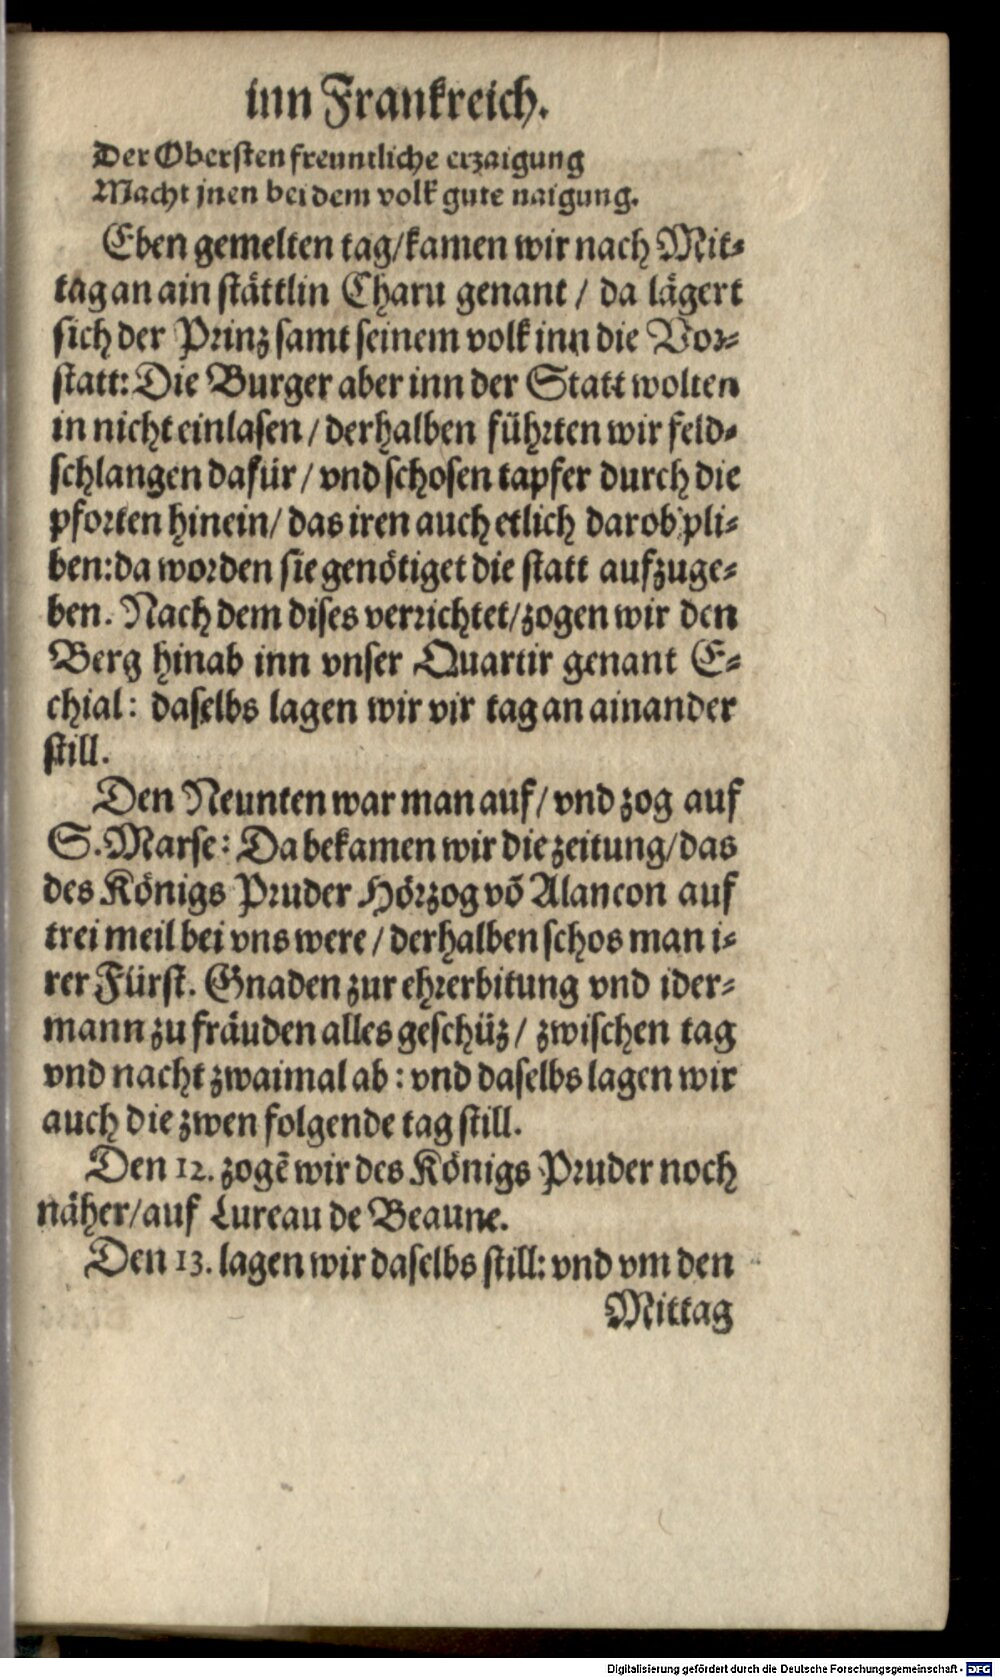 inn Frankreich.
Der Obersten freuntliche erzaigung
Macht jnen bei dem volk gute naigung.
Eben gemelten tag/kamen wir nach Mit⸗
tag an ain stättlin Charu genant / da lägert
sich der Prinz samt seinem volk inn die Vor⸗
statt: Die Burger aber inn der Statt wolten
in nicht einlasen / derhalben führten wir feld⸗
schlangen dafür / vnd schosen tapfer durch die
pforten hinein/ das iren auch etlich darob pli⸗
ben: da worden sie genötiget die statt aufzuge⸗
ben. Nach dem dises verrichtet/zogen wir den
Berg hinab inn vnser Quartir genant E⸗
chial: daselbs lagen wir vir tag an ainander
still.
Den Neunten war man auf/ vnd zog auf
S. Marse: Da bekamen wir die zeitung/das
des Königs Pruder Hörzog võ Alancon auf
trei meil bei vns were / derhalben schos man i⸗
rer Fürst. Gnaden zur ehrerbitung vnd ider⸗
mann zu fräuden alles geschüz/ zwischen tag
vnd nacht zwaimal ab: vnd daselbs lagen wir
auch die zwen folgende tag still.
Den 12. zogẽ wir des Königs Pruder noch
näher/auf Lureau de Beaune.
Den 13. lagen wir daselbs still: vnd vm den
Mittag
Digitalisierung gefördert durch die Deutsche Forschungsgemeinschaft - DFG